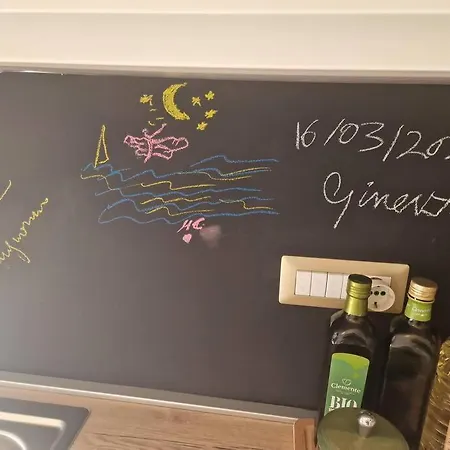 16/03/202
Ginevr
MC
Clemente
BIO